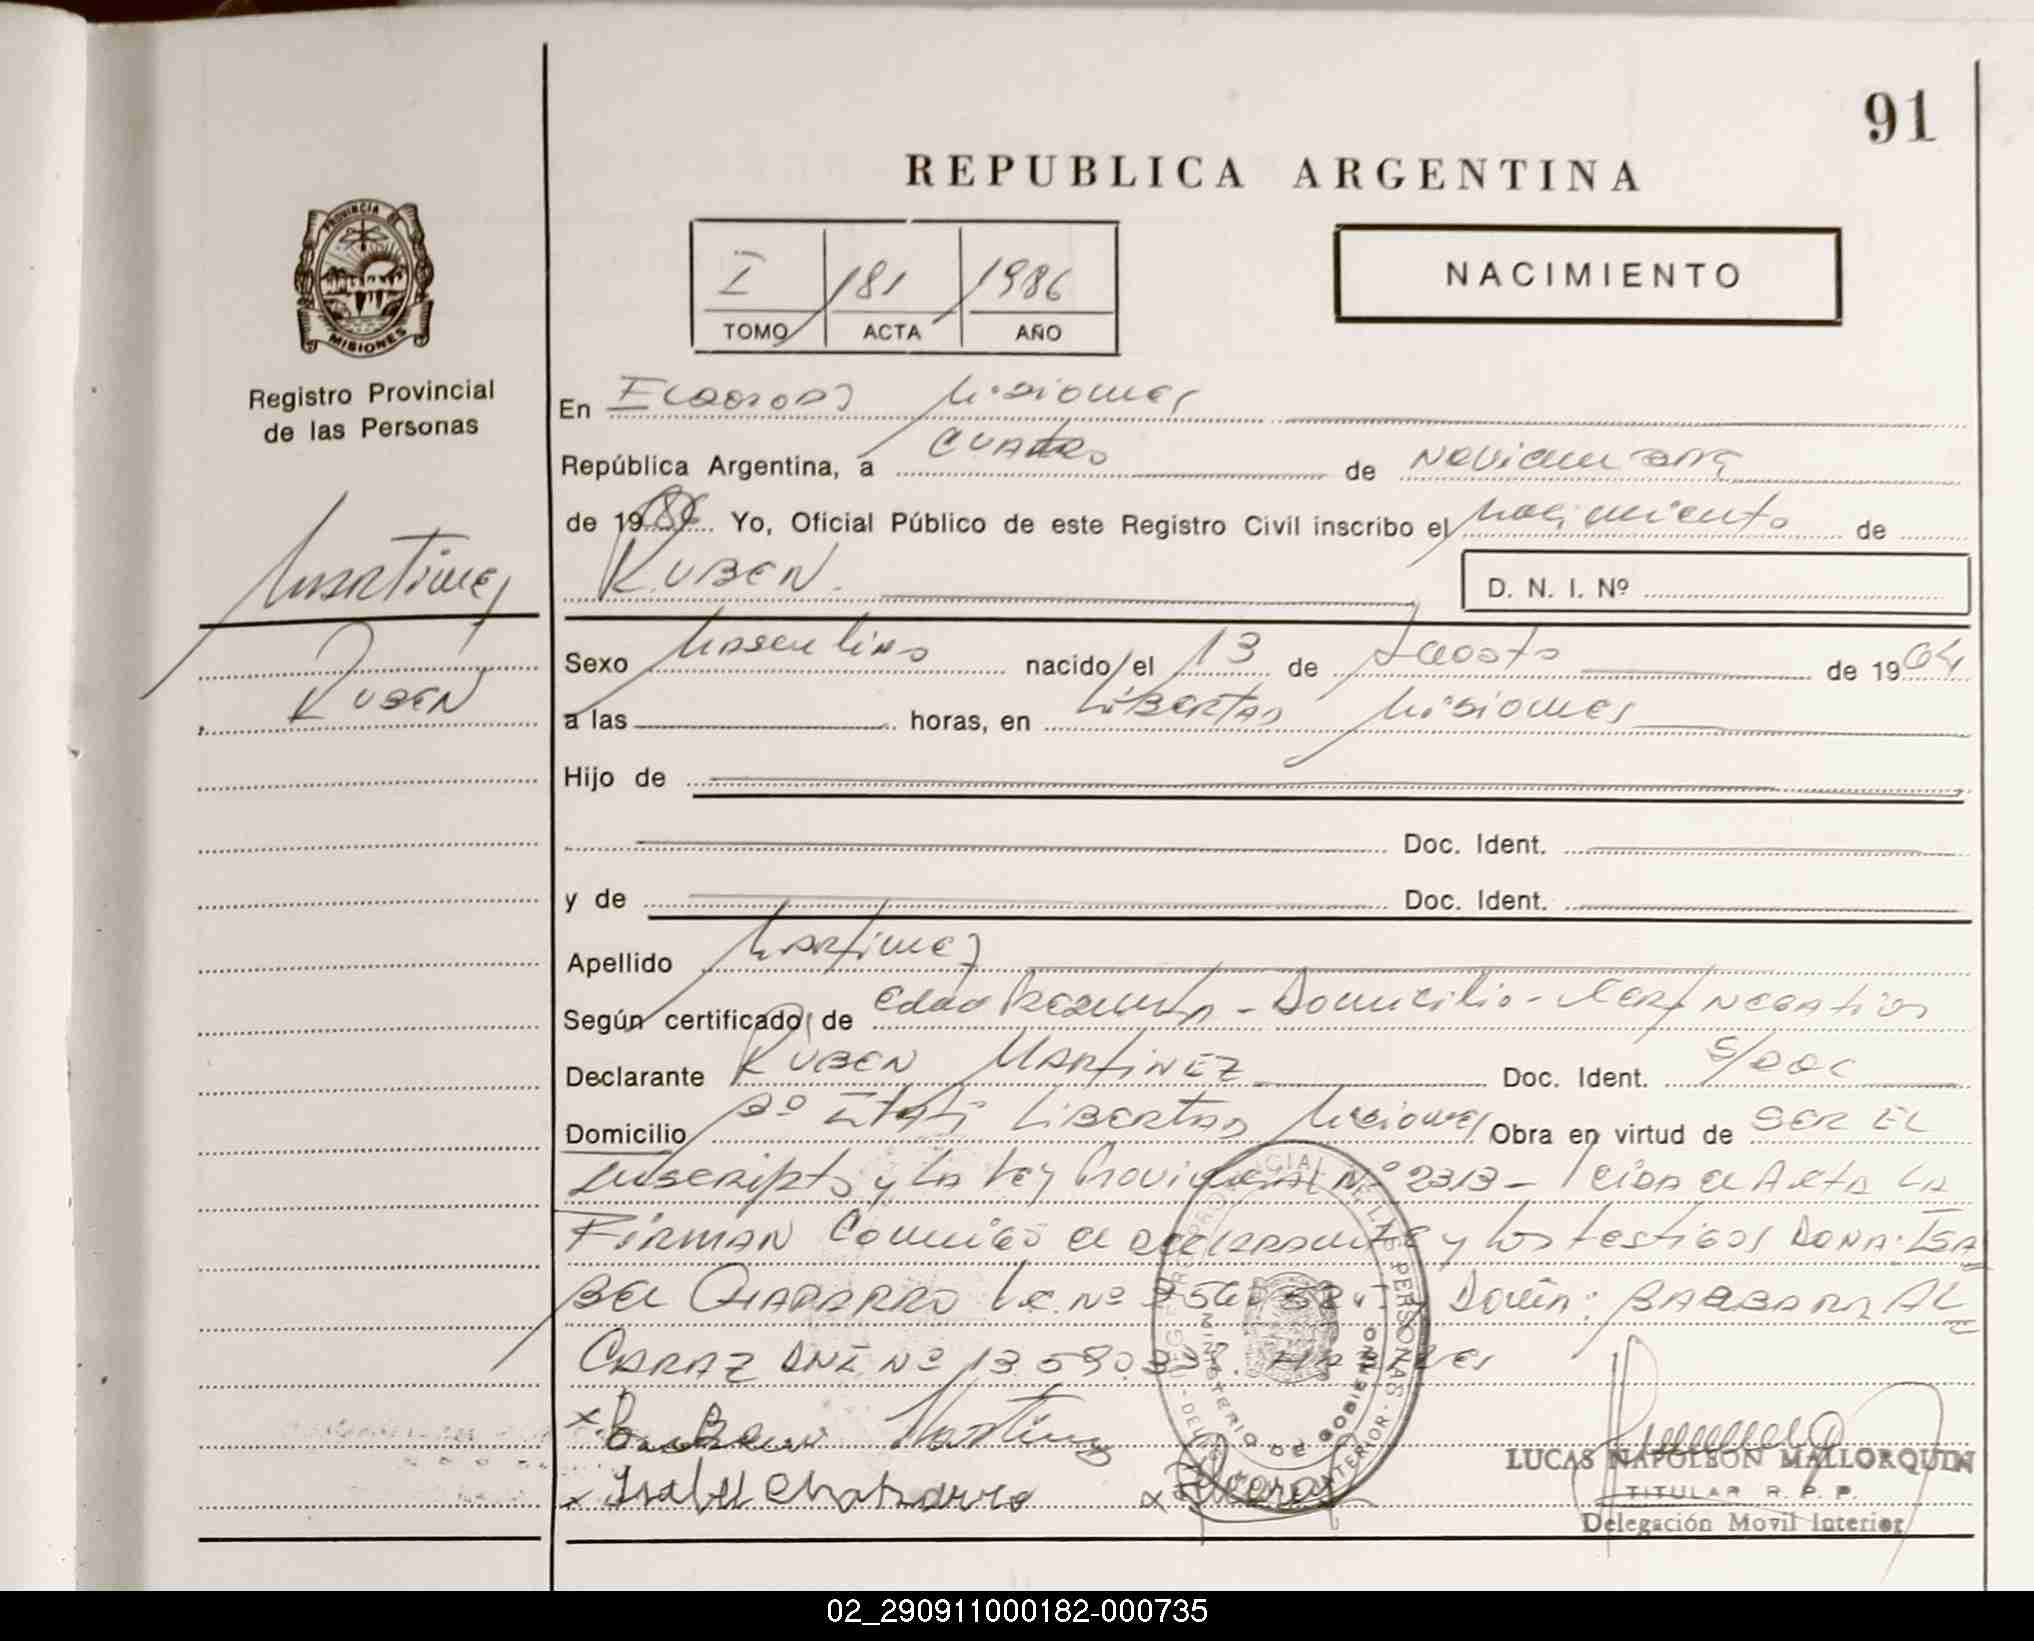 91
REPUBLICA ARGENTINA
I 181 1986
TOMO ACTA AÑO
NACIMIENTO
PROVINCIA DE
MISIONES
Registro Provincial
de las Personas
En Eldorado Misiones
República Argentina, a cuatro de Noviembre
de 1986 Yo, Oficial Público de este Registro Civil inscribo el nacimiento de
RUBEN.
D. N. I. Nº
Martinez
Ruben
Sexo Masculino nacido el 13 de Agosto de 1964
a las horas, en Libertad Misiones
Hijo de
Doc. Ident.
y de Doc. Ident.
Apellido Martinez
Según certificado de edad Presunta - Domicilio - Cert Negativo
Declarante RUBEN MARTINEZ Doc. Ident. S/DOC
Domicilio Bº Itatí Libertad Misiones Obra en virtud de SER EL
inscripto y La Ley Provincial Nº 2313 - Leida el Acta LA
FIRMAN Conmigo el declarante y los testigos DOÑA: ISA
BEL CHAPARRO L.C. Nº Doña: BARBARA AL
CARAZ DNI Nº 13.590.338.
x Ruben Martinez
x Isabel Chaparro x
REGISTRO PROVINCIAL DE LAS PERSONAS
MINISTERIO DE GOBIERNO
LUCAS NAPOLEON MALLORQUIN
TITULAR R. P. P.
Delegación Movil Interior
02_290911000182-000735